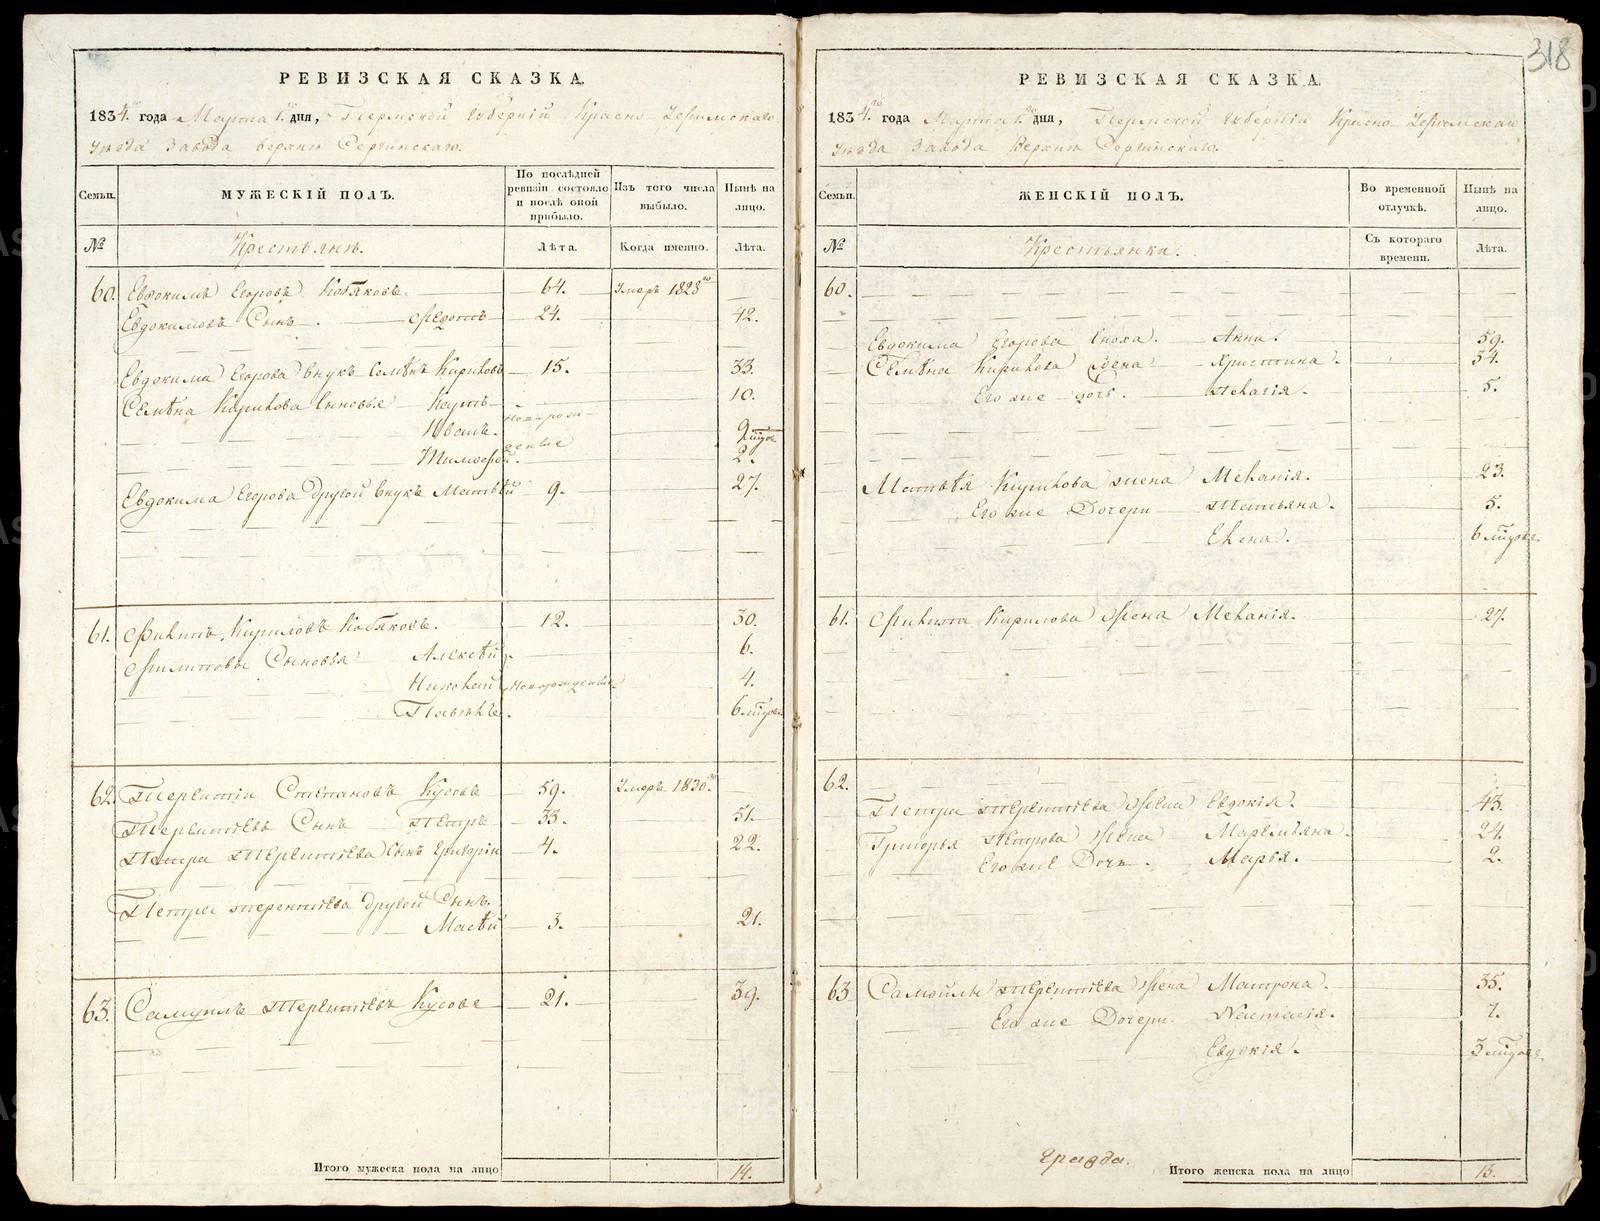 318
РЕВИЗСКАЯ СКАЗКА.
1834го года Марта 1го дня, Пермской губернiи Красно
уезда Завода верхне Сергинскаго.
Семьи.
МУЖЕСКIЙ ПОЛЪ.
По послѣдней ревизiи состояло и послѣ оной прибыло.
Изъ того числа выбыло.
Нынѣ на лицо.
№
Крестьяне.
Лѣта.
Когда именно.
Лѣта.
60. Евдокимъ Егоровъ 64. Умеръ 1828го
Евдокимовъ Сынъ Федотъ 24. 42.
Евдокима Егорова внукъ Семенъ Кириловъ 15. 33.
Семена Кирилова сыновья Карпъ 10.
Иванъ. новорож- 9
Тимофей. денные 2.
Евдокима Егорова другой внукъ Матвей 9. 27.
61. Филипъ Кириловъ 12. 30.
Филиповы Сыновья Алексѣй 6.
Николай Новорожденные 4.
Павелъ. 6
62. Терентiй Степановъ Кусовъ 59. Умеръ 1830го
Терентьевъ Сынъ Петръ 33. 51.
Петра Терентьева Сынъ Григорiй 4. 22.
Петра терентьева другой Сынъ.
Масѣй 3. 21.
63. Самуилъ Терентьевъ Кусовъ 21. 39.
Итого мужеска пола на лицо 14.
РЕВИЗСКАЯ СКАЗКА.
1834го года Марта 1го дня, Пермской губернiи Красно
уезда Завода Верхне Сергинскаго.
Семьи.
ЖЕНСКIЙ ПОЛЪ.
Во временной отлучкѣ.
Нынѣ на лицо.
№
Крестьянки.
Съ котораго времени.
Лѣта.
60.
Евдокима Егорова сноха. Анна. 59.
Семена Кирилова жена Христина. 34.
Его же дочь. Пелагiя. 5.
Матвѣя Кирилова жена Меланiя. 23.
Его же Дочери Татьяна. 5.
Елена. 6
61. Филипа Кирилова Жена Меланiя. 27.
62.
Петра терентьева Жена Евдокiя. 43.
Григорья Петрова Жена Маремьяна. 24.
Его же Дочь. Марья. 2.
63. Самойлы терентьева Жена Матрона. 35.
Его же Дочери. Настасiя. 7.
Евдокiя. 3
Итого женска пола на лицо 13.